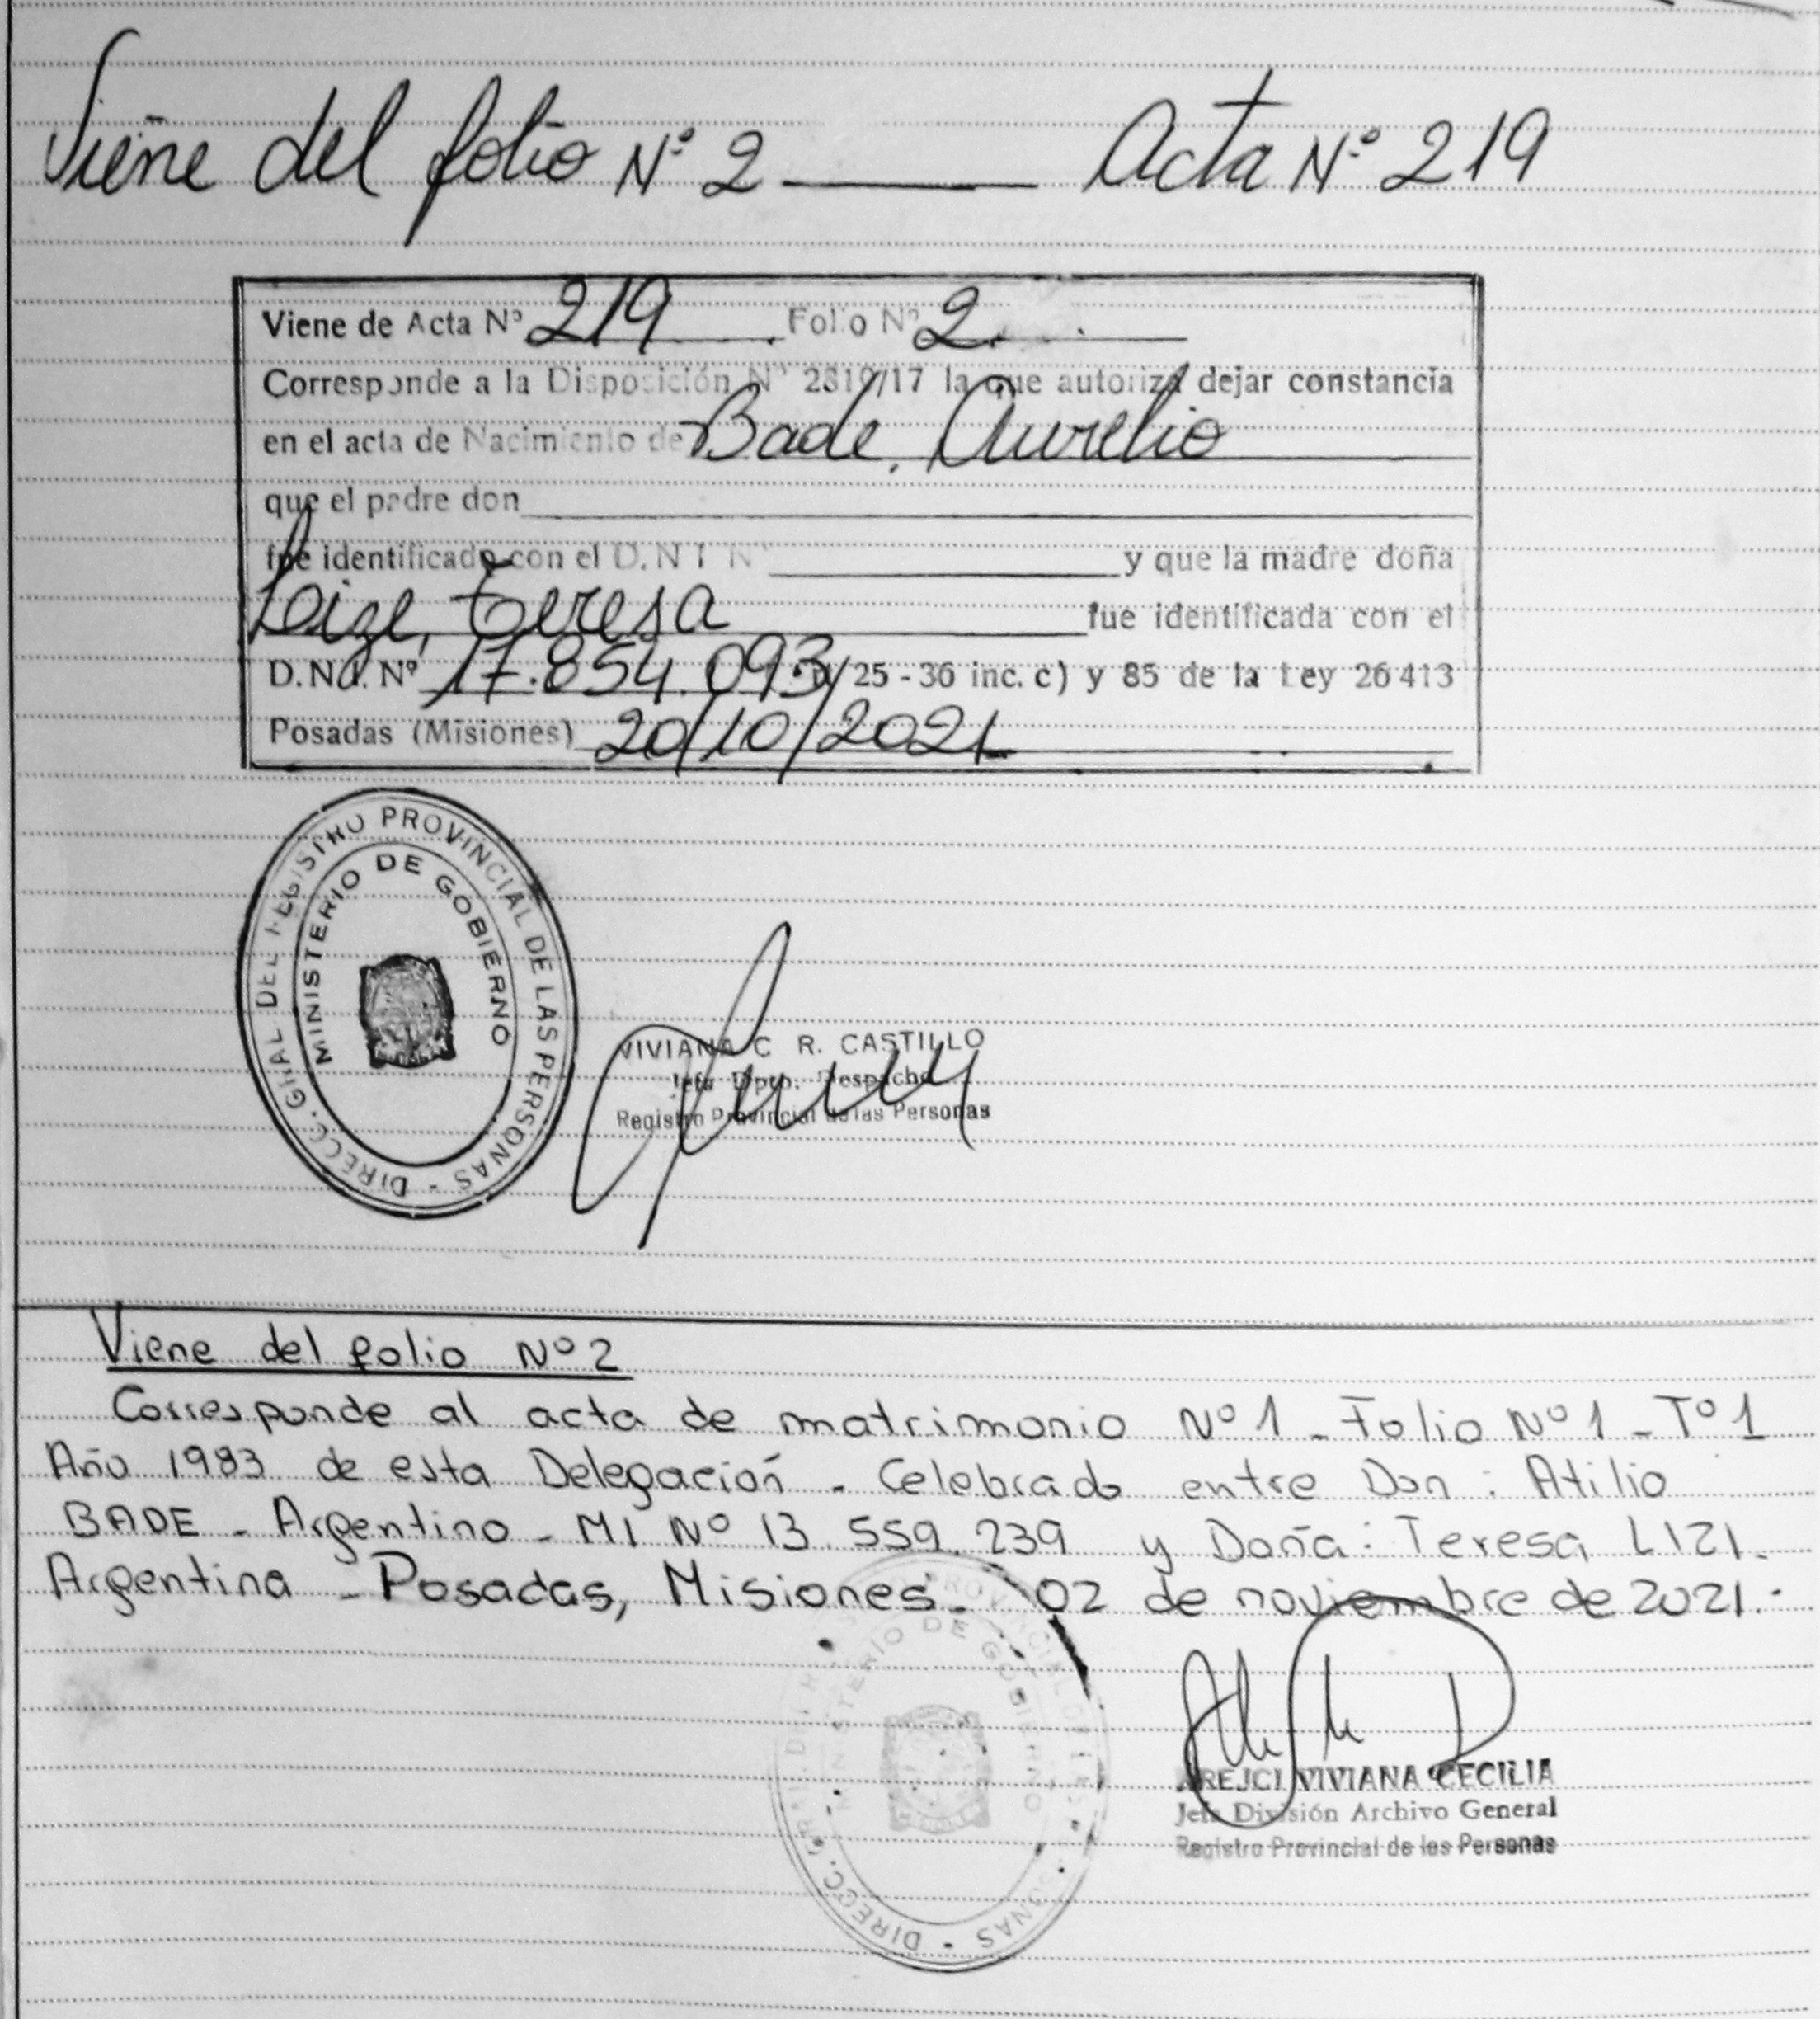 Viene del folio Nº 2 ______ Acta Nº 219
Viene de Acta Nº 219 Folio Nº 2
Corresponde a la Disposición Nº 2819/17 la que autoriza dejar constancia
en el acta de Nacimiento de Bade, Aurelio
que el padre don
fue identificado con el D.N.I Nº y que la madre doña
Teresa fue identificada con el
D.N.I. Nº 17.854.093 25-36 inc. c) y 85 de la Ley 26413
Posadas (Misiones) 20/10/2021
DIRECC. GRAL DEL REGISTRO PROVINCIAL DE LAS PERSONAS -
MINISTERIO DE GOBIERNO
VIVIANA C R. CASTILLO
Jefa Dpto. Despacho
Registro Provincial de las Personas
Viene del folio Nº 2
Corresponde al acta de matrimonio Nº 1 _ Folio Nº 1 _ Tº 1
Año 1983 de esta Delegación - Celebrado entre Don: Atilio
BADE - Argentino - MI Nº 13.559.239 y Doña: Teresa LIZI.
Argentina - Posadas, Misiones - 02 de noviembre de 2021.-
MINISTERIO DE GOBIERNO
AREJCI VIVIANA CECILIA
Jefa División Archivo General
Registro Provincial de las Personas